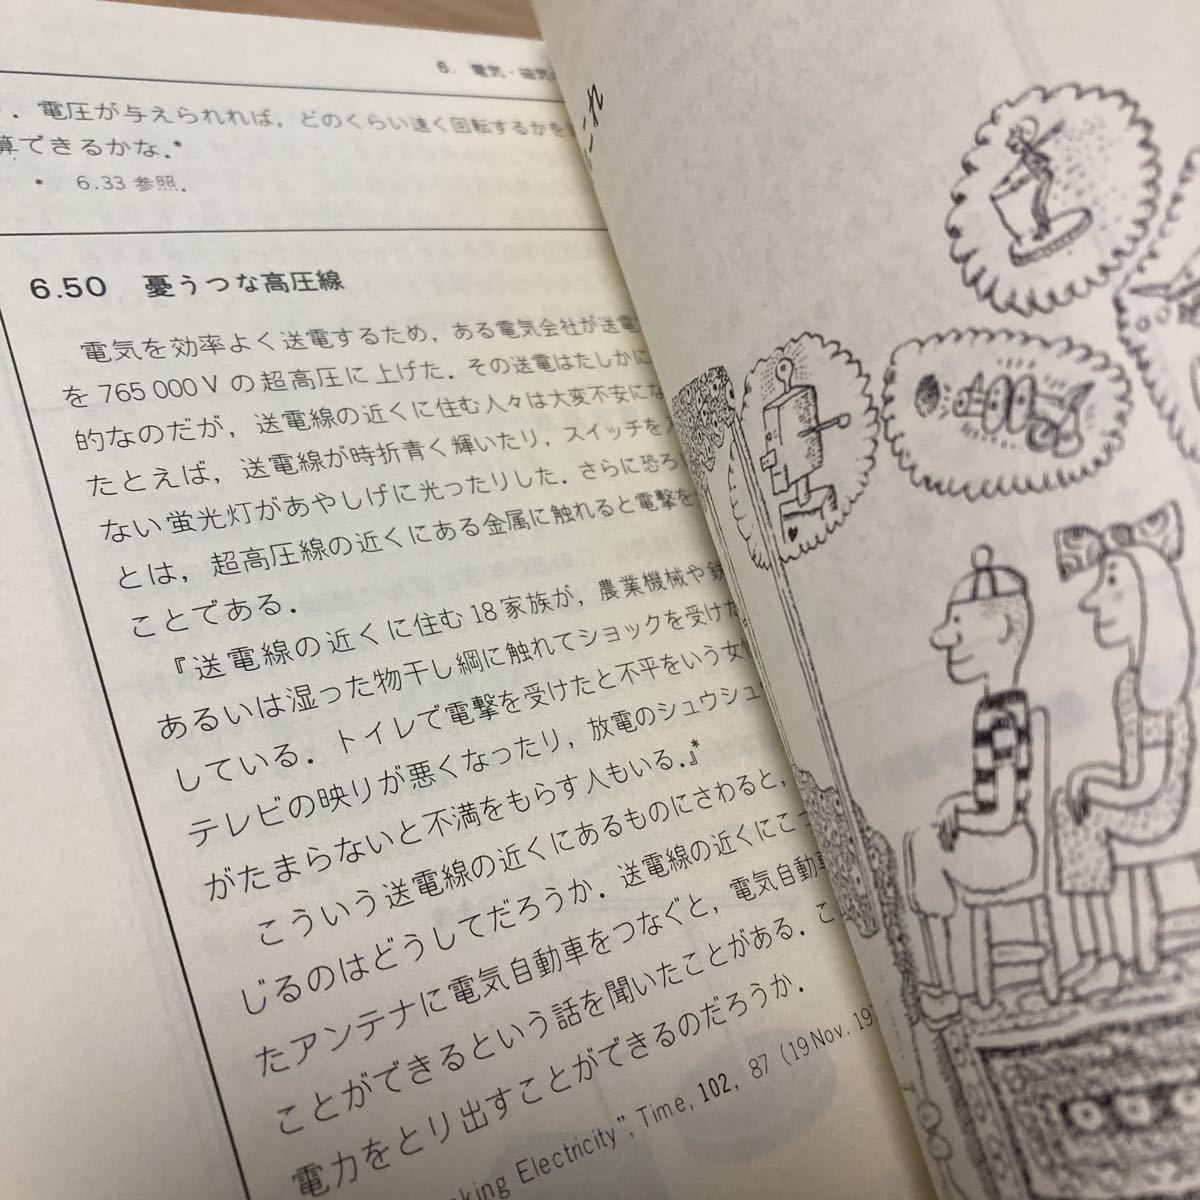 6. 電気・磁気
. 電圧が与えられれば, どのくらい速く回転するかを
算できるかな.*
* 6.33 参照.
6.50 憂うつな高圧線
電気を効率よく送電するため, ある電気会社が送電
を 765 000 V の超高圧に上げた. その送電はたしかに
的なのだが, 送電線の近くに住む人々は大変不安にな
たとえば, 送電線が時折青く輝いたり, スイッチを入
ない蛍光灯があやしげに光ったりした. さらに恐ろ
とは, 超高圧線の近くにある金属に触れると電撃を
ことである.
『送電線の近くに住む 18 家族が, 農業機械や鉄
あるいは湿った物干し綱に触れてショックを受けた
している. トイレで電撃を受けたと不平をいう女性
テレビの映りが悪くなったり, 放電のシュウシュ
がたまらないと不満をもらす人もいる.』*
こういう送電線の近くにあるものにさわると,
じるのはどうしてだろうか. 送電線の近くにこっ
たアンテナに電気自動車をつなぐと, 電気自動車
ことができるという話を聞いたことがある. こ
電力をとり出すことができるのだろうか.
king Electricity", Time, 102, 87 (19 Nov. 197
これ